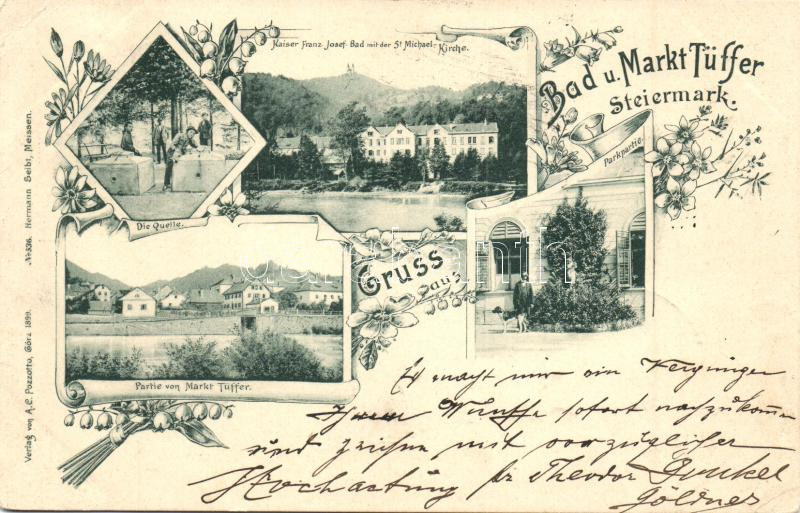 Kaiser Franz Josef-Bad mit der St Michael-Kirche.
Bad u. Markt Tüffer
Steiermark.
Parkpartie.
Die Quelle.
Gruss
aus
Partie von Markt Tüffer.
Verlag von A.C. Pozzotto, Görz 1899. No 536. Hermann Seibt, Meissen.
Es macht mir ein Vergnügen
Wunsche sofort nachzukommen
und zeichne mit vorzüglicher
Hochachtung pr Theodor Gunkel
Göldner